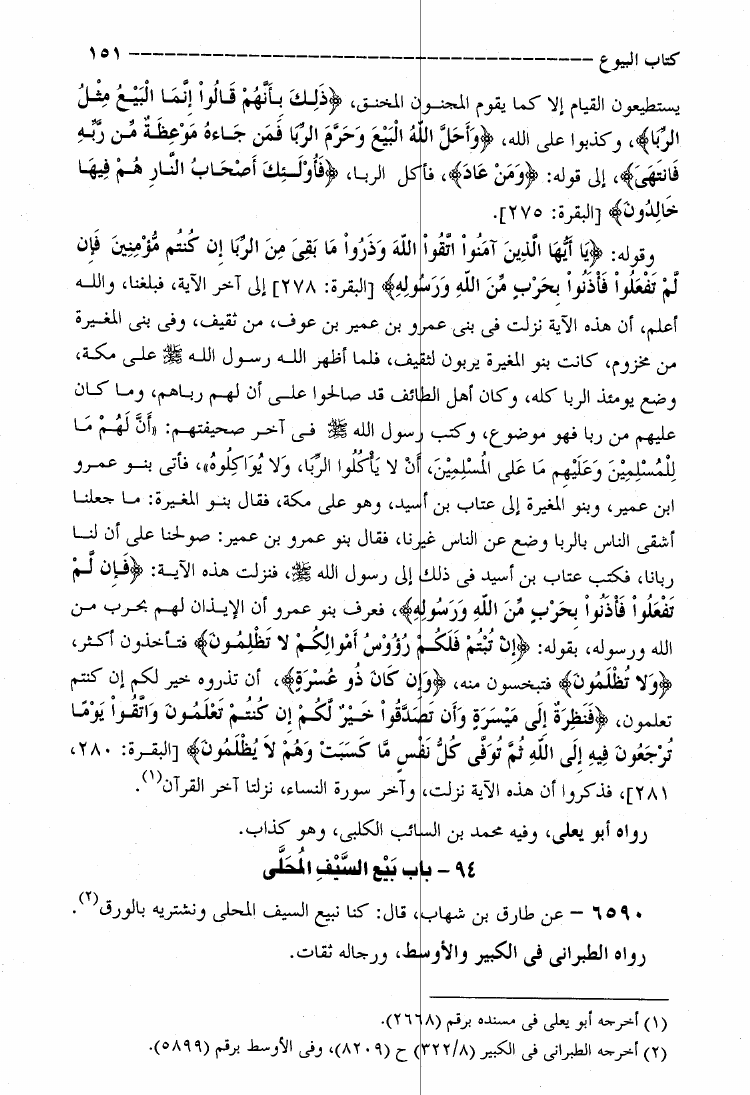 كتاب البيوع ــــــــــــــــــــــــــــــــــــــــــــ ١٥١
يستطيعون القيام إلا كما يقوم المجنون المخنق، ﴿ذَلِكَ بِأَنَّهُمْ قَالُواْ إِنَّمَا الْبَيْعُ مِثْلُ
الرِّبَا﴾، وكذبوا على الله، ﴿وَأَحَلَّ اللَّهُ الْبَيْعَ وَحَرَّمَ الرِّبَا فَمَن جَاءهُ مَوْعِظَةٌ مِّن رَّبِّهِ
فَانتَهَىَ﴾، إلى قوله: ﴿وَمَنْ عَادَ﴾، فأكل الربا، ﴿فَأُوْلَـئِكَ أَصْحَابُ النَّارِ هُمْ فِيهَا
خَالِدُونَ﴾ [البقرة: ٢٧٥].
وقوله: ﴿يَا أَيُّهَا الَّذِينَ آمَنُواْ اتَّقُواْ اللّهَ وَذَرُواْ مَا بَقِىَ مِنَ الرِّبَا إِن كُنتُم مُّؤْمِنِينَ فَإِن
لَّمْ تَفْعَلُواْ فَأْذَنُواْ بِحَرْبٍ مِّنَ اللّهِ وَرَسُولِهِ﴾ [البقرة: ٢٧٨] إلى آخر الآية، فبلغنا، والله
أعلم، أن هذه الآية نزلت فى بنى عمرو بن عمير بن عوف، من ثقيف، وفى بنى المغيرة
من مخزوم، كانت بنو المغيرة يربون لثقيف، فلما أظهر الله رسول الله ﷺ على مكة،
وضع يومئذ الربا كله، وكان أهل الطائف قد صالحوا على أن لهم رباهم، وما كان
عليهم من ربا فهو موضوع، وكتب رسول الله ﷺ فى آخر صحيفتهم: «أَنَّ لَهُمْ مَا
لِلْمُسْلِمِينَ وَعَلَيْهِم مَا عَلَى الْمُسْلِمِيْنَ، أَنْ لا يَأْكُلُوا الرِّبَا، وَلا يُوَاكِلُوهُ»، فأتى بنو عمرو
ابن عمير، وبنو المغيرة إلى عتاب بن أسيد، وهو على مكة، فقال بنو المغيرة: ما جعلنا
أشقى الناس بالربا وضع عن الناس غيرنا، فقال بنو عمرو بن عمير: صولحنا على أن لنا
ربانا، فكتب عتاب بن أسيد فى ذلك إلى رسول الله ﷺ، فنزلت هذه الآية: ﴿فَإِن لَّمْ
تَفْعَلُواْ فَأْذَنُواْ بِحَرْبٍ مِّنَ اللّهِ وَرَسُولِهِ﴾، فعرف بنو عمرو أن الإيذان لهم بحرب من
الله ورسوله، بقوله: ﴿إِنْ تُبْتُمْ فَلَكُمْ رُؤُوسُ أَمْوَالِكُمْ لاَ تَظْلِمُونَ﴾ فتأخذون أكثر،
﴿وَلاَ تُظْلَمُونَ﴾ فتبخسون منه، ﴿وَإِن كَانَ ذُو عُسْرَةٍ﴾، أن تذروه خير لكم إن كنتم
تعلمون، ﴿فَنَظِرَةٌ إِلَى مَيْسَرَةٍ وَأَن تَصَدَّقُواْ خَيْرٌ لَّكُمْ إِن كُنتُمْ تَعْلَمُونَ وَاتَّقُواْ يَوْمًا
تُرْجَعُونَ فِيهِ إِلَى اللّهِ ثُمَّ تُوَفَّى كُلُّ نَفْسٍ مَّا كَسَبَتْ وَهُمْ لاَ يُظْلَمُونَ﴾ [البقرة: ٢٨٠،
٢٨١]، فذكروا أن هذه الآية نزلت، وآخر سورة النساء، نزلتا آخر القرآن(١).
رواه أبو يعلى، وفيه محمد بن السائب الكلبى، وهو كذاب.
٩٤ - باب بَيْع السَّيْفِ المُحَلَّى
٦٥٩٠ - عن طارق بن شهاب، قال: كنا نبيع السيف المحلى ونشتريه بالورق(٢).
رواه الطبرانى فى الكبير والأوسط، ورجاله ثقات.
(١) أخرجه أبو يعلى فى مسنده برقم (٢٦٦٨).
(٢) أخرجه الطبرانى فى الكبير (٣٢٢/٨) ح (٨٢٠٩)، وفى الأوسط برقم (٥٨٩٩).